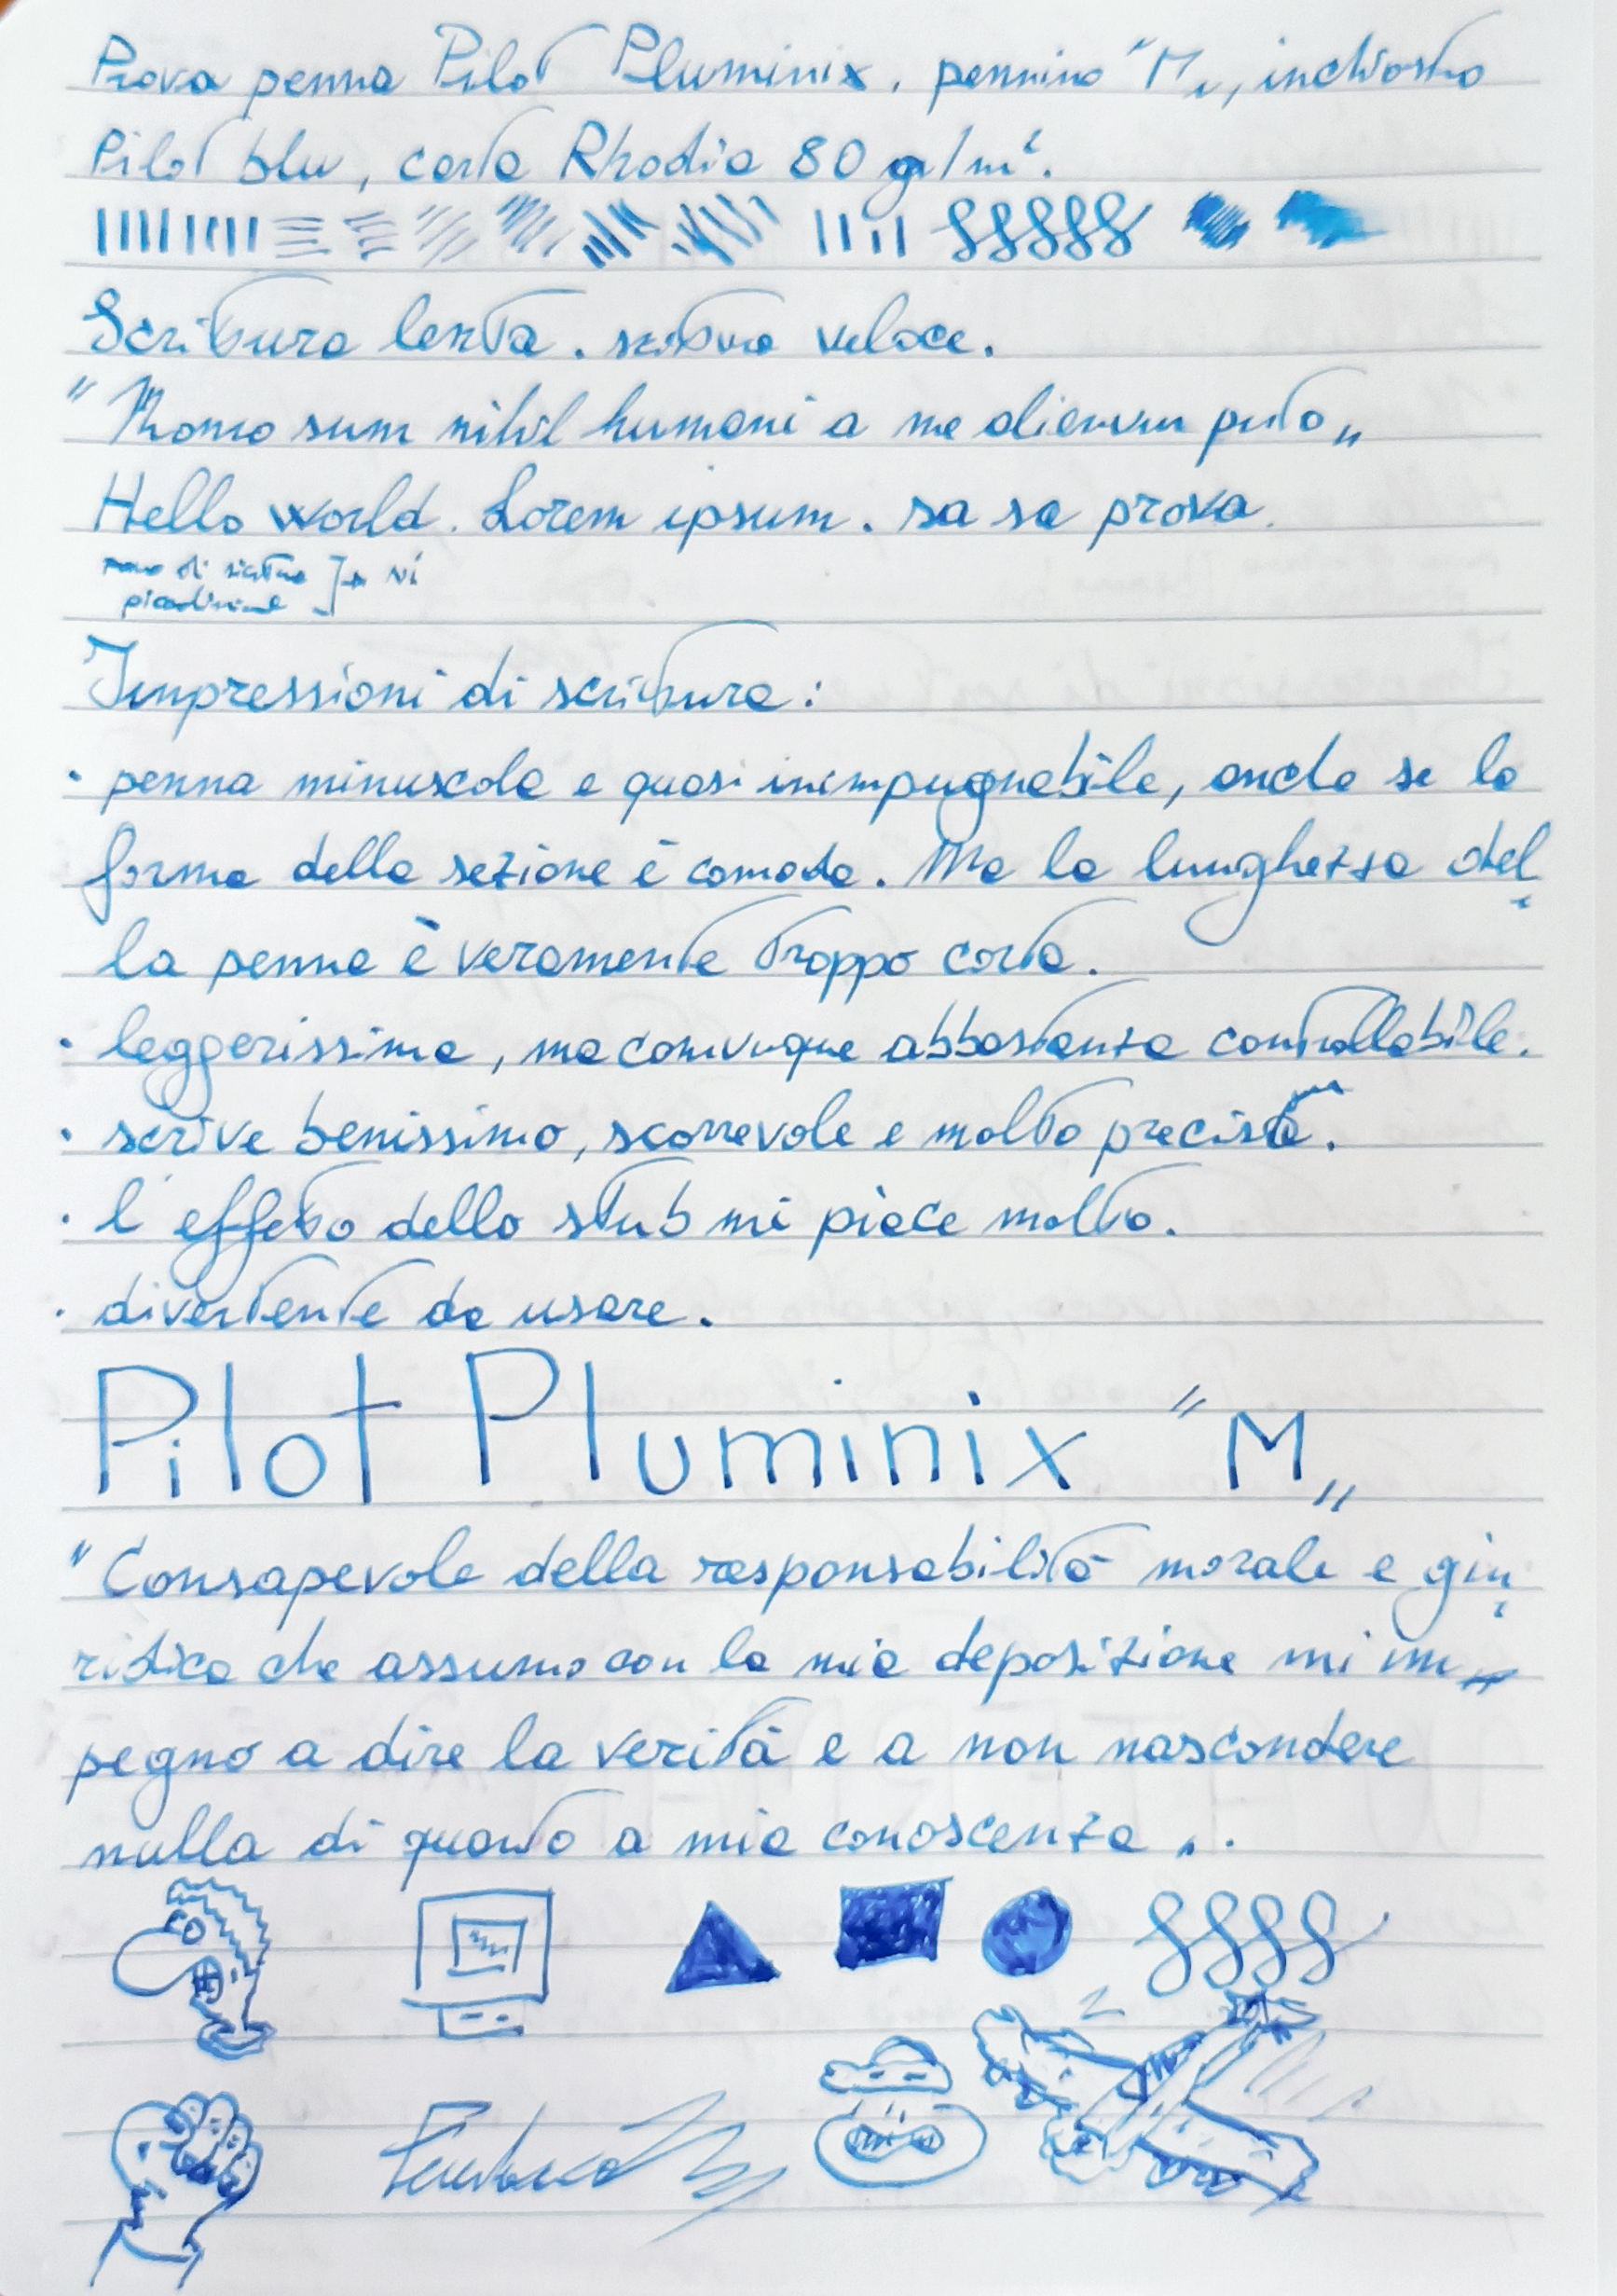 Prova penna Pilot Pluminix, pennino "M„, inchiostro
Pilot blu, carta Rhodia 80 gr/m².
Scrittura lenta. scrittura veloce.
"Homo sum nihil humani a me alienum puto„
Hello world. Lorem ipsum. sa sa prova.
prova di scrittura
piccolissima ]→ sì
Impressioni di scrittura:
· penna minuscola e quasi inimpugnabile, anche se la
forma della sezione è comoda. Ma la lunghezza del=
la penna è veramente troppo corta.
· leggerissima, ma comunque abbastanza controllabile.
· scrive benissimo, scorrevole e molto precisa.
· l'effetto dello stub mi piace molto.
· divertente da usare.
Pilot Pluminix "M„
"Consapevole della responsabilità morale e giu=
ridica che assumo con la mia deposizione mi im=
pegno a dire la verità e a non nascondere
nulla di quanto a mia conoscenza...